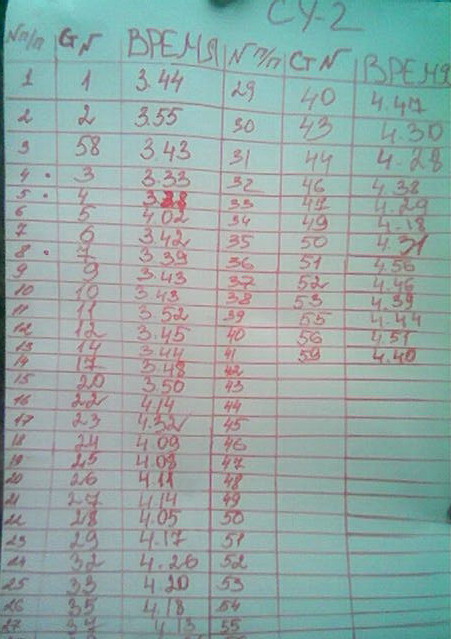 СУ-2
№п/п СТ№ ВРЕМЯ №п/п СТ№ ВРЕМЯ
1 1 3.44 29 40 4.47
2 2 3.55 30 43 4.30
3 58 3.43 31 44 4.28
4 3 3.33 32 46 4.38
5 4 33 47 4.29
6 5 4.02 34 49 4.18
7 6 3.42 35 50 4.31
8 7 3.39 36 51 4.56
9 9 3.43 37 52 4.46
10 10 3.43 38 53 4.39
11 11 3.52 39 55 4.44
12 12 3.45 40 56 4.51
13 14 3.44 41 59 4.40
14 17 3.48 42
15 20 3.50 43
16 22 4.14 44
17 23 4.32 45
18 24 4.09 46
19 25 4.08 47
20 26 4.11 48
21 27 4.14 49
22 28 4.05 50
23 29 4.17 51
24 32 4.26 52
25 33 4.20 53
26 35 4.18 54
27 4.13 55